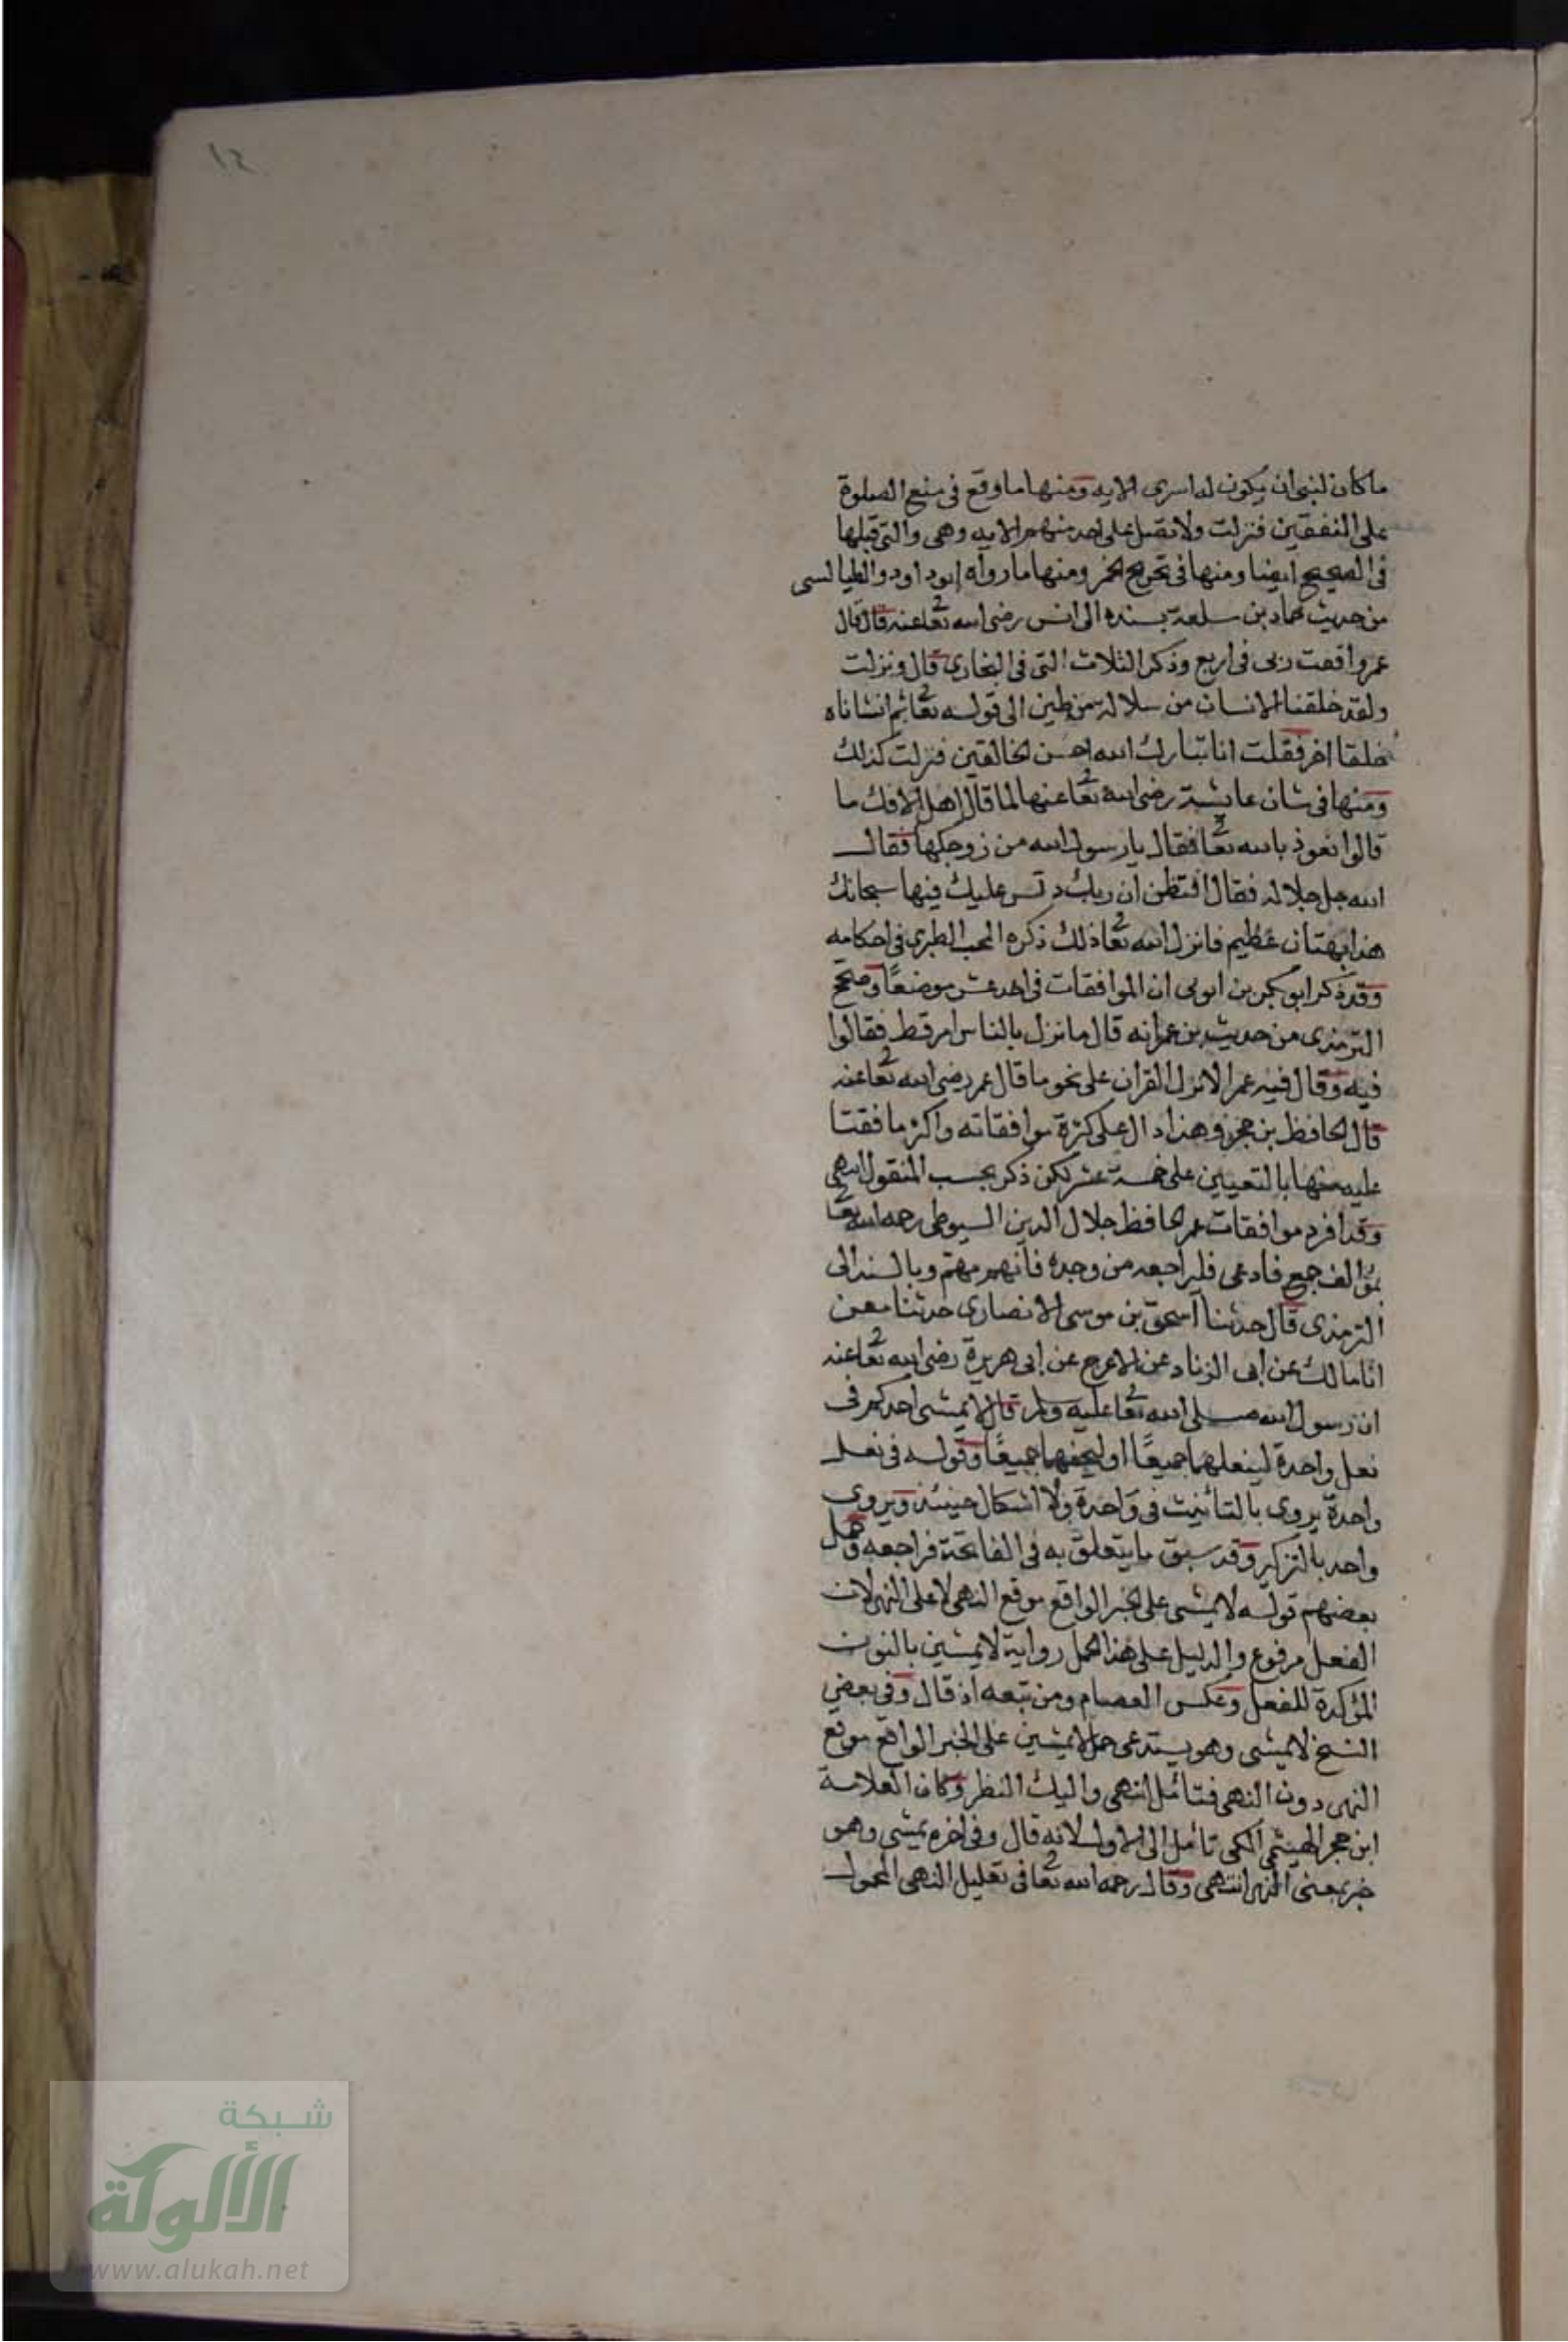 ١٢
ما كان لنبي ان يكون له اسرى الايه ومنها ما وقع في منع الصلوة
على المنفقين فنزلت ولا تصل على احد منهم الايه وهي والتي قبلها
في الصحيح ايضا ومنها في تحريم الخمر ومنها ما رواه ابود اود والطيالسى
من حديث حماد بن سلمة بسنده الى انس رضى الله تعا عنه قال قال
عمر وافقت ربى في اربع وذكر الثلاث التي في البخارى قال ونزلت
ولقد خلقنا الانسان من سلاله من طين الى قوله تعا ثم انشاناه
خلقا اخر فقلت انا تبارك الله احسن الخالقين فنزلت كذلك
ومنها في شان عايشة رضى الله تعا عنها لما قال اهل الافك ما
قالوا نعوذ بالله تعا فقال يا رسول الله من زوجكها فقال
الله جل جلاله فقال افتظن ان ربك دلس عليك فيها سبحانك
هذا بهتان عظيم فانزل الله تعا ذلك ذكره المحب الطبرى في احكامه
وقد ذكر ابو بكر بن ان الموافقات في احد عشر موضعًا وصحح
الترمذى من حديث بن عمر انه قال ما نزل بالناس امر قط فقالوا
فيه وقال فيه عمر الا نزل القران على نحو ما قال عمر رضى الله تعا عنه
قال الحافظ بن حجر وهذا دال على كثرة موافقاته واكثر ما فقتا
عليه منها بالتعيين على خمسة عشر لكن ذكر بحسب المنقول انتهى
وقد افرد موافقات عمر الحافظ جلال الدين السيوطى رحمه الله تعا
بمؤالف جمع فادعى فليراجعه من وجده فانه مهم وبالسند الى
الترمذى قال حدثنا اسحق بن موسى الانصارى حدثنا معن
انا مالك عن ابى الزناد عن الاعرج عن ابى هريرة رضى الله تعا عنه
ان رسول الله صلى الله تعا عليه وسلم قال لا يمشى احدكم في
نعل واحدة لينعلهما جميعًا او ليحفهما جميعًا وقوله في نعل
واحدة يروى بالتأنيث في واحدة ولا اشكال حينئذ ويروى
واحد بالتزكير وقد سبق ما يتعلق به في الفاتحة فراجعه وحمل
بعضهم قوله لا يمشى على الخبر الواقع موقع النهى لا على النهى لان
الفعل مرفوع والدليل على هذا الحمل رواية لا يمشين بالنون
المؤكدة للفعل وعكس العصام ومن تبعه اذ قال وفي بعض
النسخ لا يمشى وهو يستدعى حمل لا يمشين على الخبر الواقع موقع
النهى دون النهى فتأمل انتهى واليك النظر وكان العلامة
ابن حجر الهيثمى المكى تأمل الى الاول لانه قال وفي اخره يمشى وهو
خبر بمعنى النهى انتهى وقال رحمه الله تعا في تعليل النهى المحمول
شبكة
الألوكة
www.alukah.net